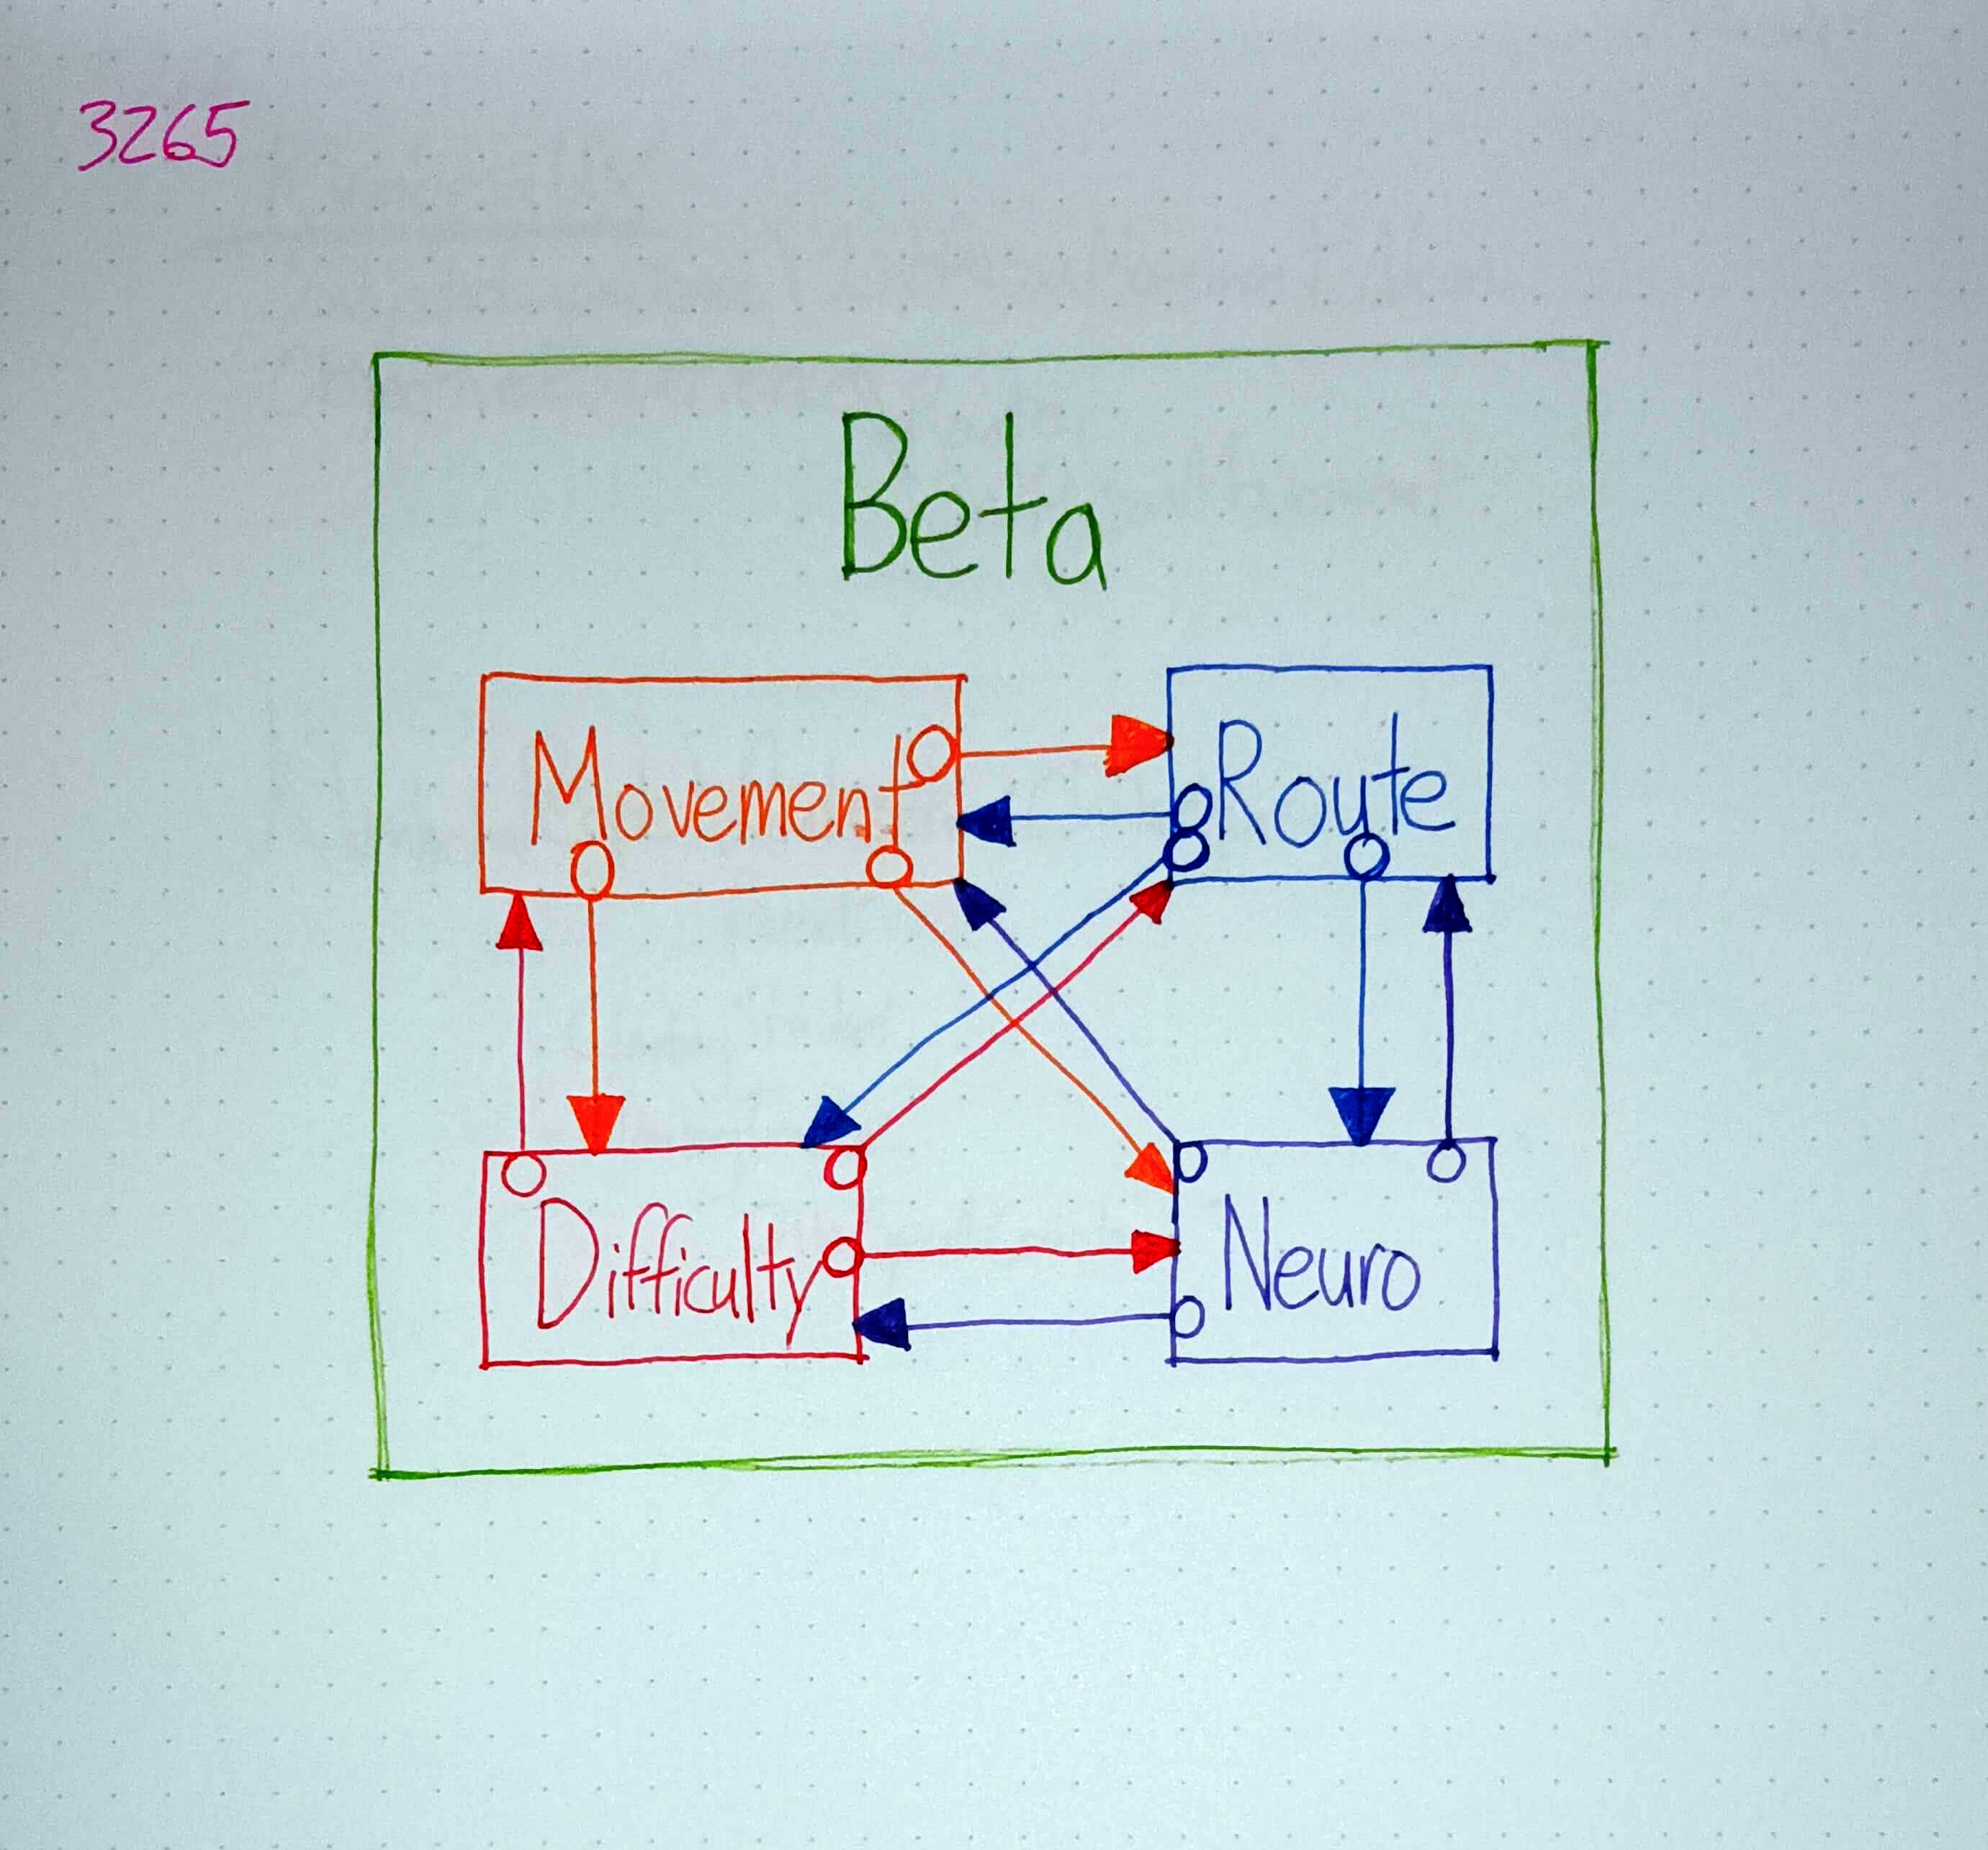 3265
Beta
Movement
Route
Difficulty
Neuro